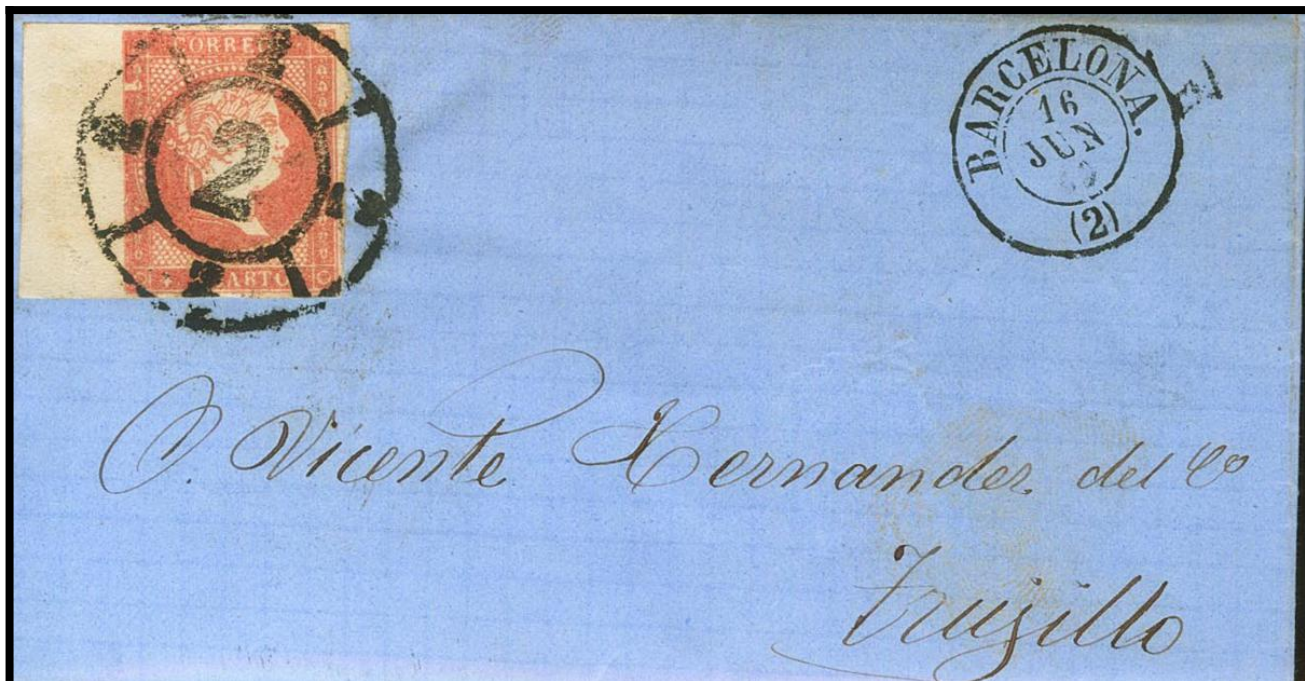 CORREOS
2
CUARTOS
BARCELONA.
16
JUN
(2)
D. Vicente Hernandez del Co
Trugillo